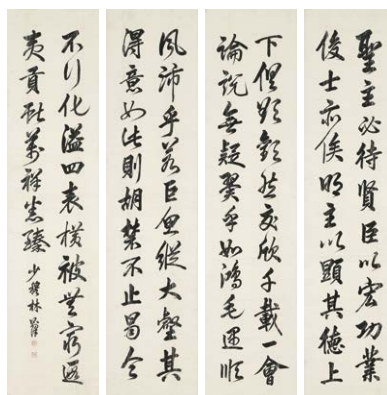 聖主必待賢臣以宏功業
俊士亦俟明主以顯其德上
下俱欲歡然交欣千載一會
論說無疑翼乎如鴻毛遇順
風沛乎若巨魚縱大壑其
得意如此則胡禁不止曷令
不行化溢四表橫被無窮遐
夷貢獻萬祥畢臻 少穆林則徐